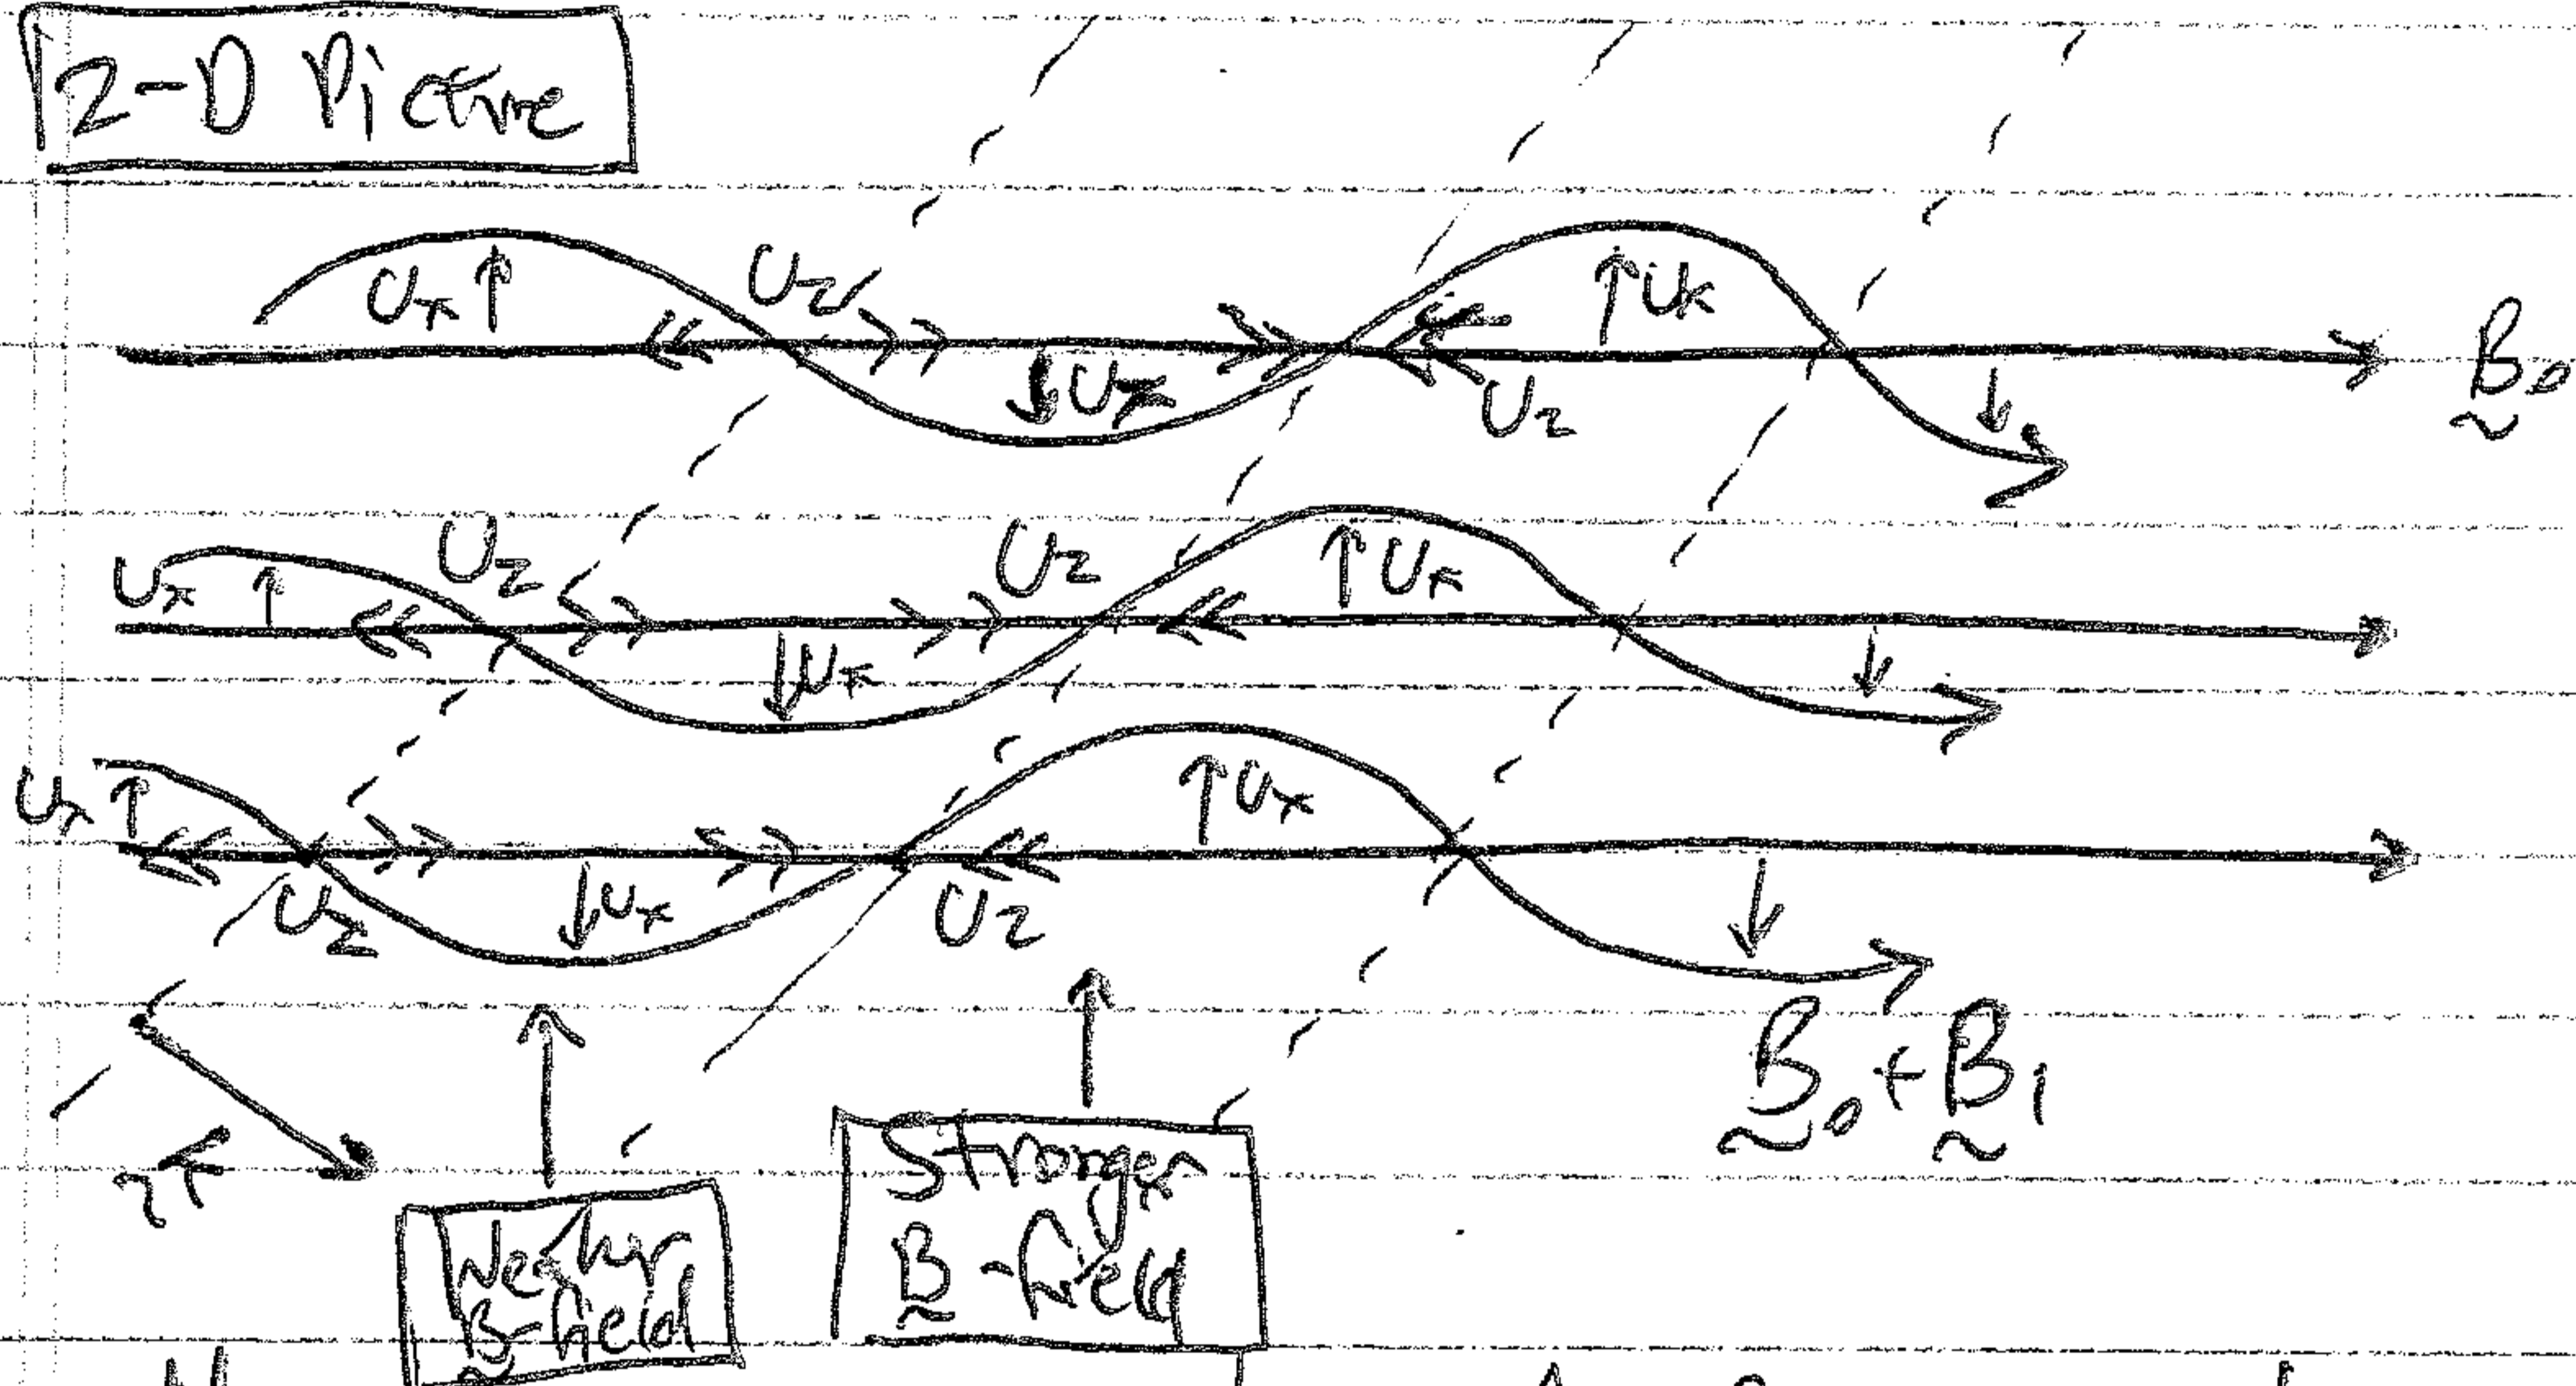 2-D Picture
Ux Uz Ux
B0
Ux Uz
Ux Uz Uz Ux
Ux
Ux Ux
Uz Ux Uz
B0 + B1
k
Weaker
B-field
Stronger
B-field